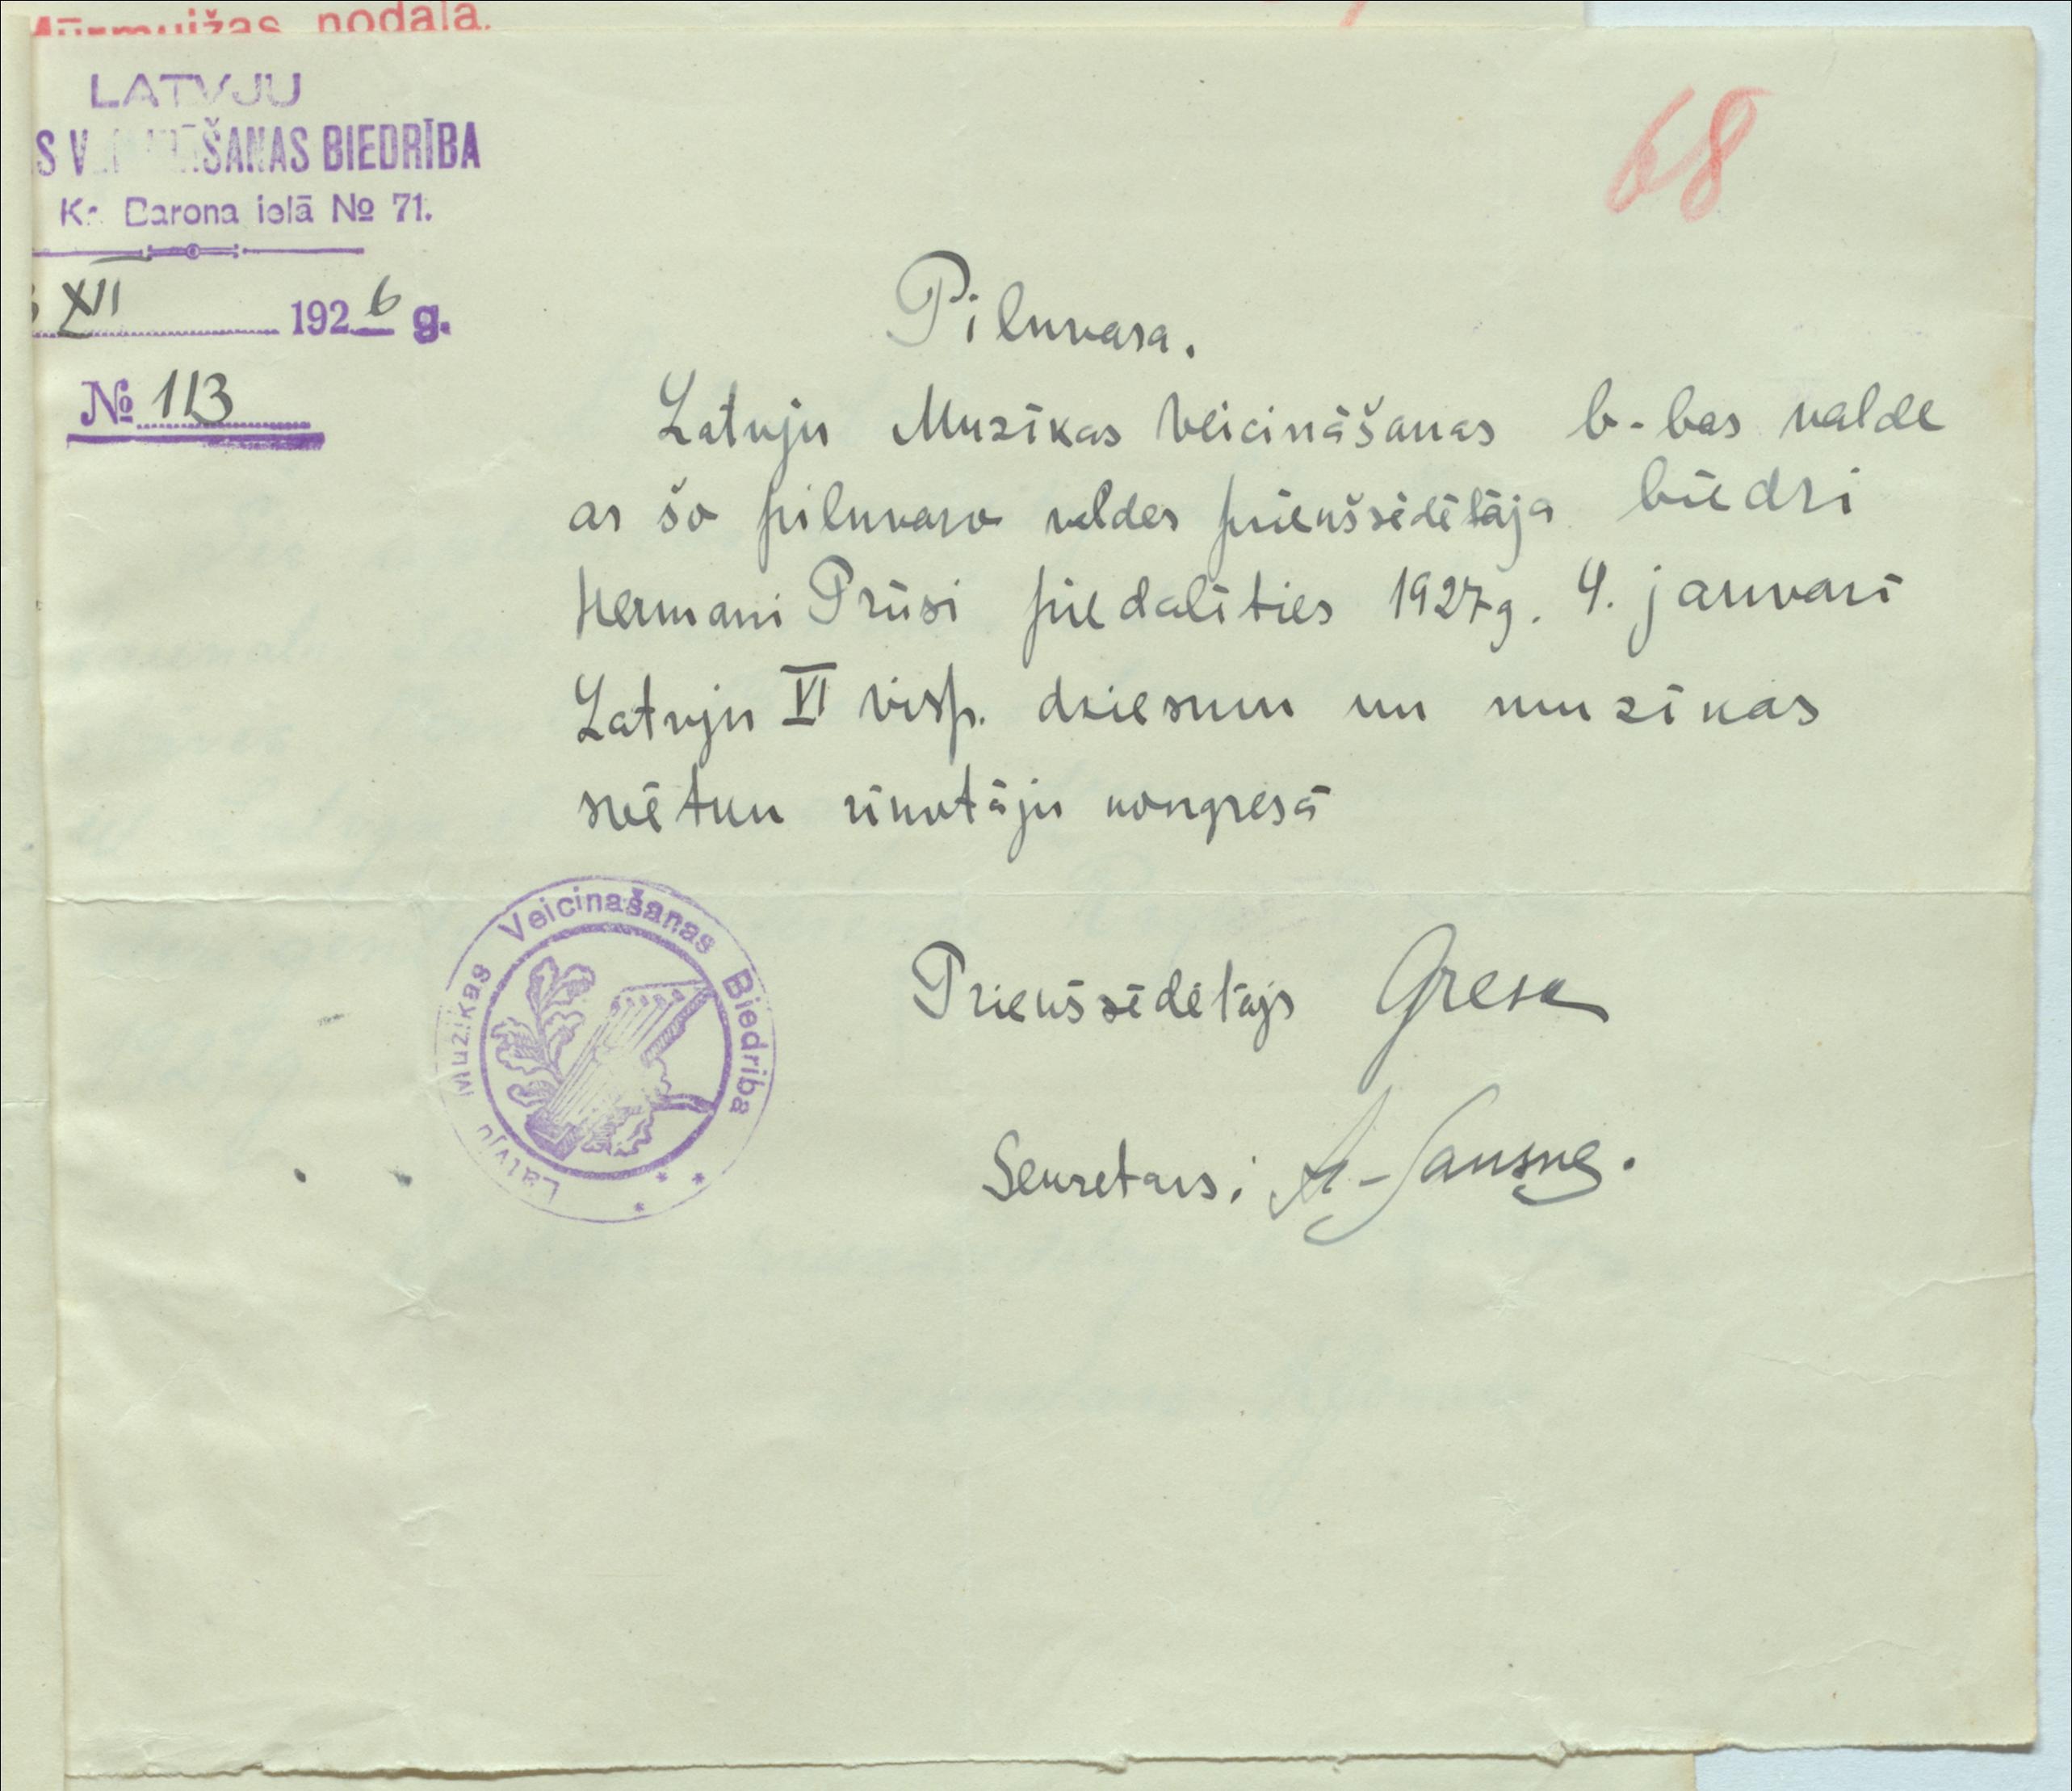 nodaļa.
LATVJU
ŠANAS BIEDRĪBA
Kr. Barona ielā № 71.
XII 1926 g.
№ 113
68
Pilnvara.
Latvju Muzīkas Veicināšanas b-bas valde
ar šo pilnvaro valdes priekšsēdētāja biedri
Hermani Prūsi piedalīties 1927g. 4. janvarī
Latvju VI visp. dziesmu un muzīkas
svētku rīkotāju kongresā
Latvju Muzikas Veicinašanas Biedriba
Priekšsēdētājs
Sekretars: